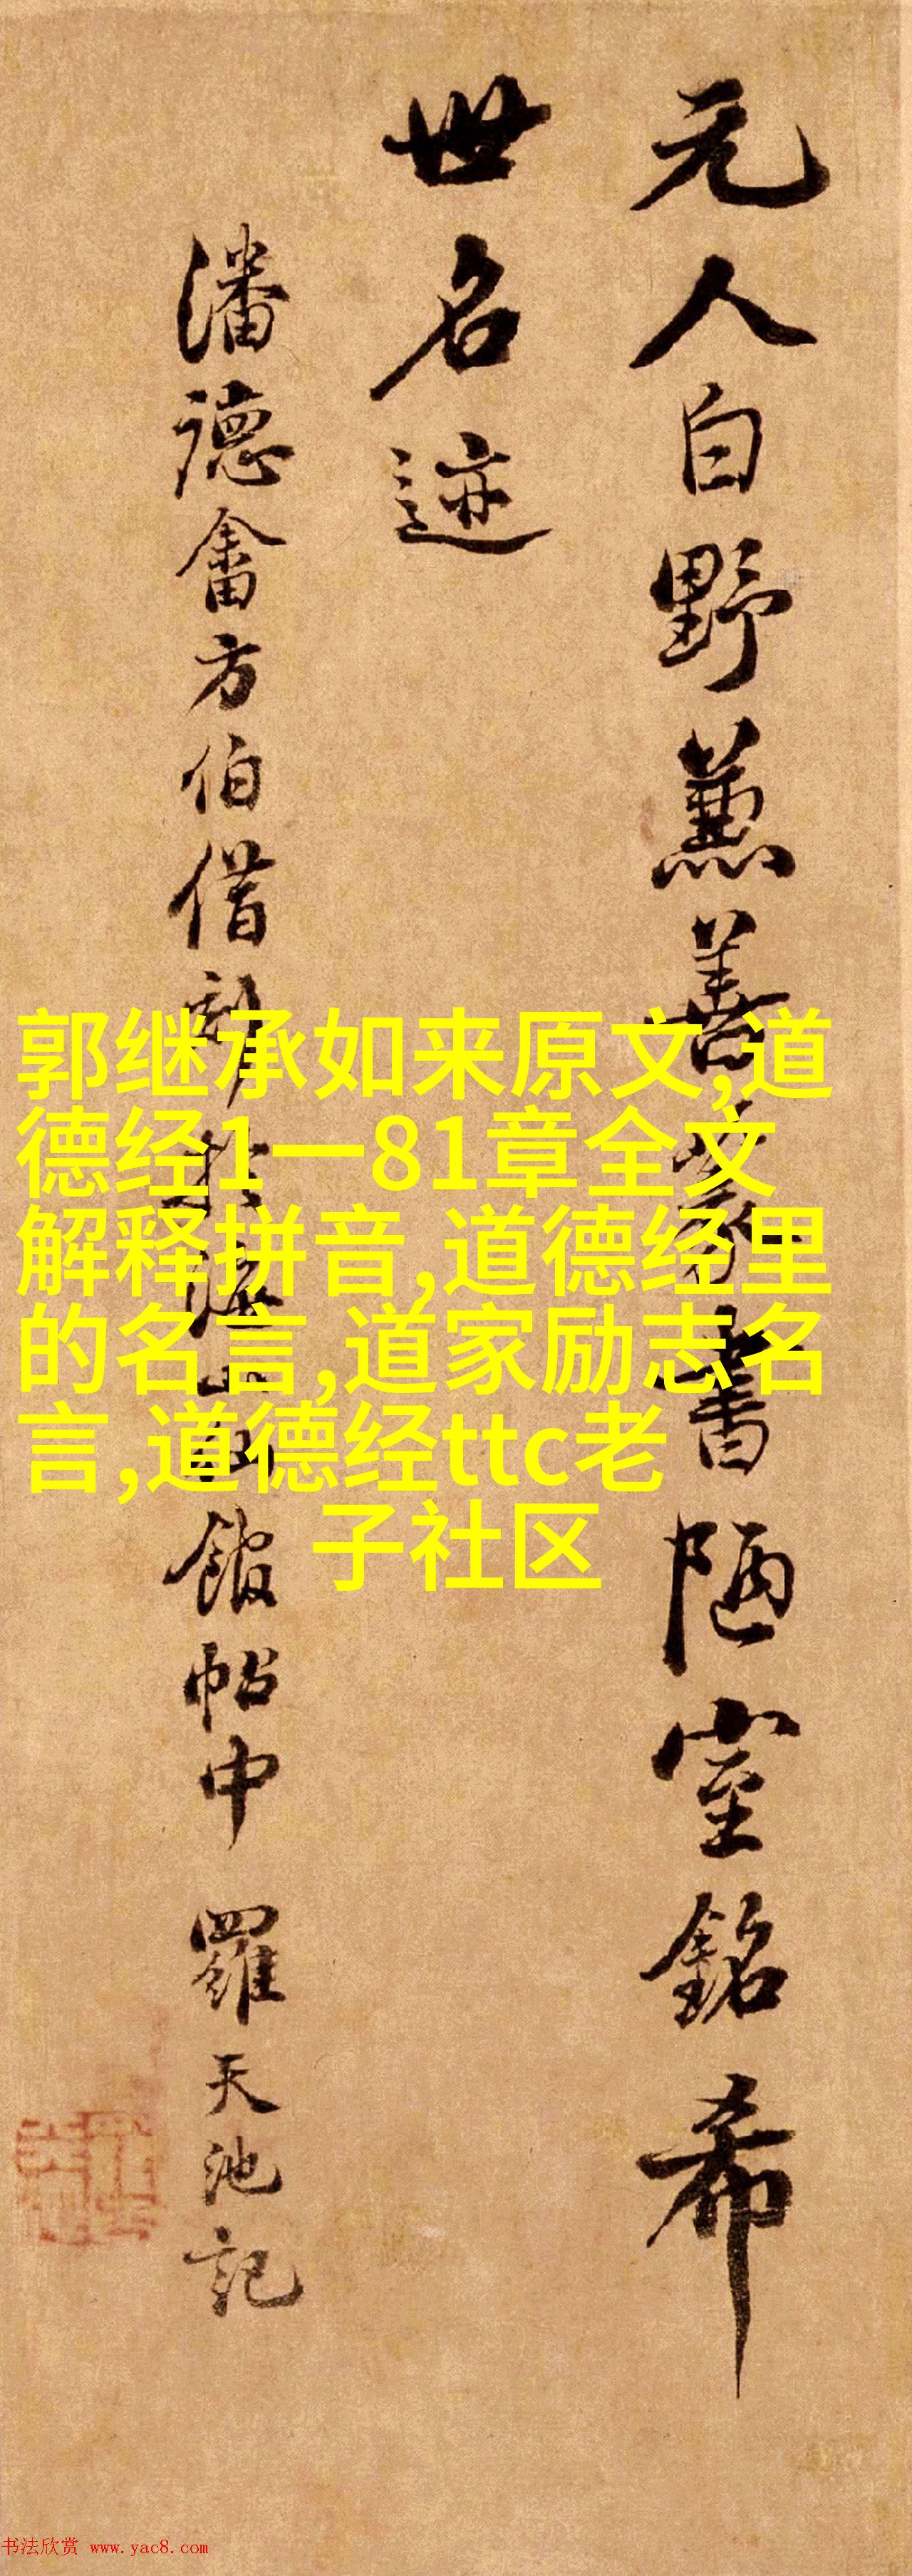 元人白野薫善篆書陋室銘希
世名迹
潘德畬方伯借刻於海山仙館帖中 羅天池記
郭继承如来原文,道
德经1一81章全文
解释拼音,道德经里
的名言,道家励志名
言,道德经ttc老
子社区
书法欣赏 www.yac8.com